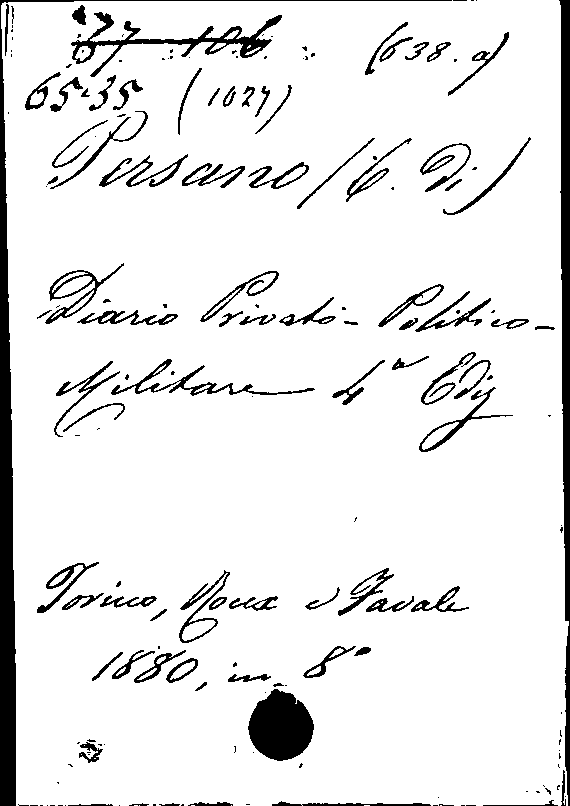 37 106 (638. a)
65.35 (1027)
Persano (C. Di)
Diario Privato-Politico-
Militare 4a Ediz
Torino, Roux e Favale
1880, in 8°